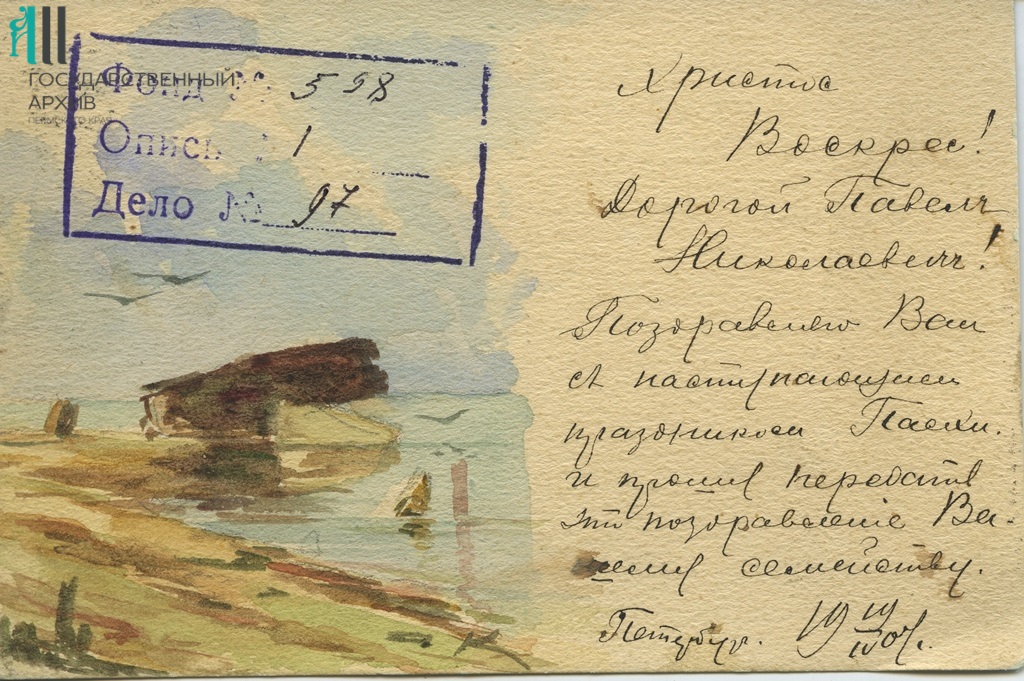 ГОСУДАРСТВЕННЫЙ
АРХИВ
ПЕРМСКОГО КРАЯ
Фонд № 598
Опись № 1
Дело № 97
Христос
Воскрес!
Дорогой Павелъ
Николаевичъ!
Поздравляю Вас
съ наступающим
праздником Пасхи.
и прошу передать
это поздравленіе Ва-
шему семейству.
Петербург. 19 19/IV 07.